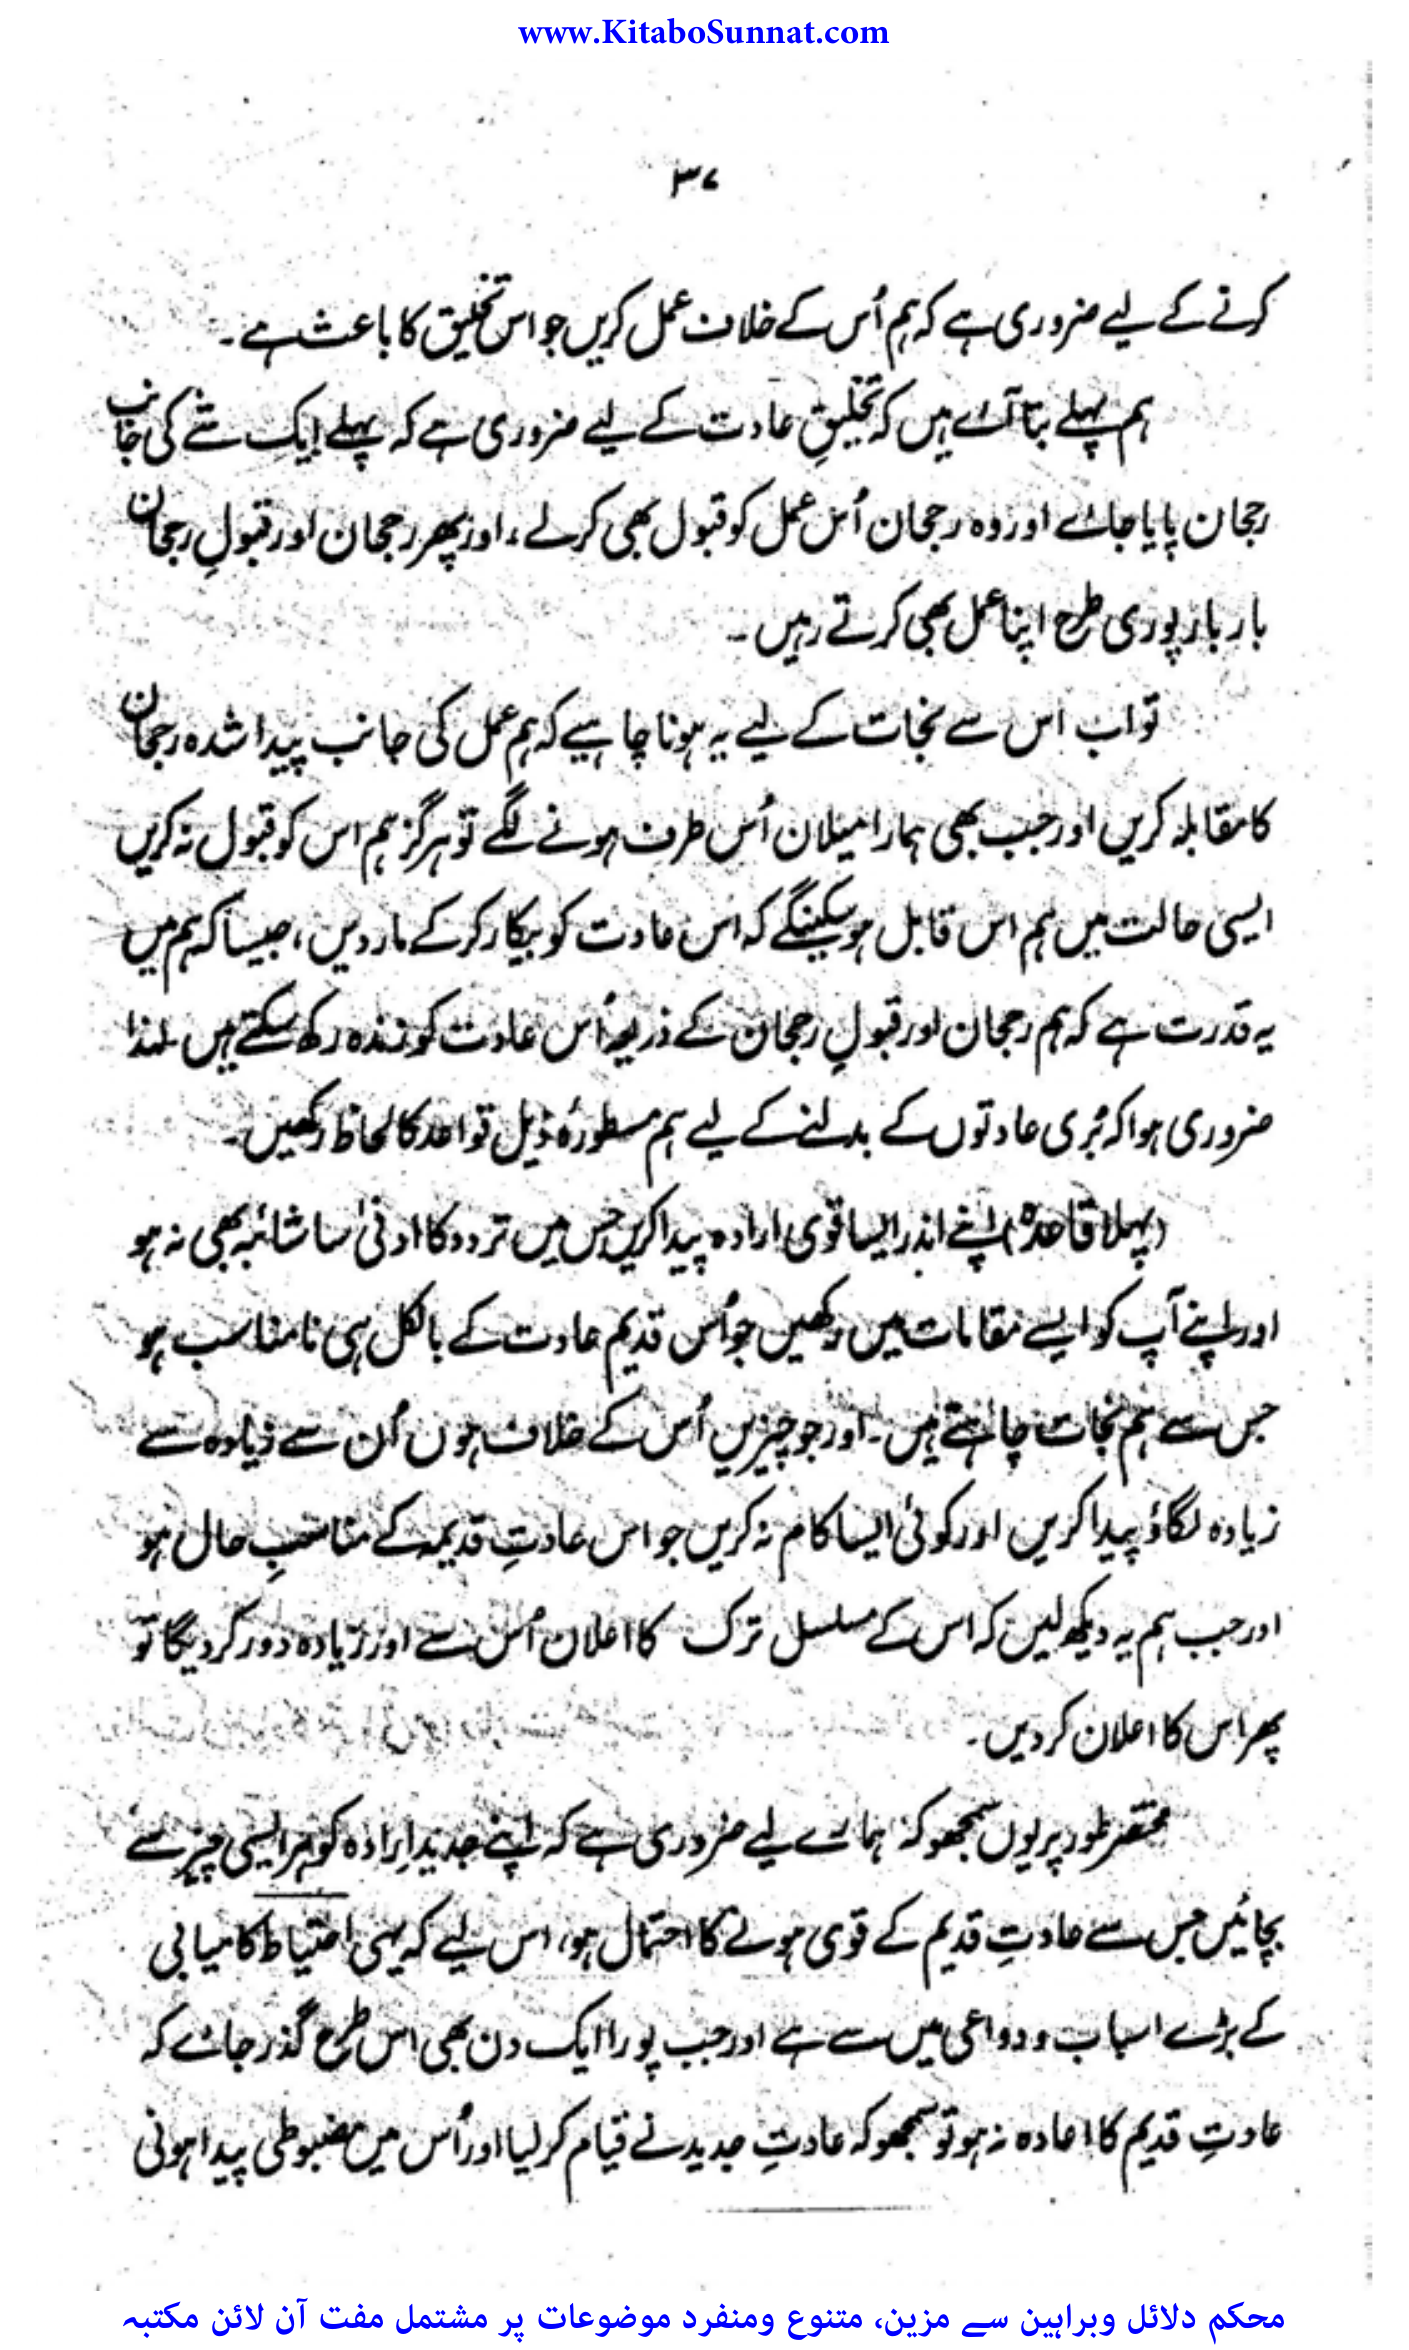 www.KitaboSunnat.com
۳۷
کرنے کے لیے ضروری ہے کہ ہم اُس کے خلاف عمل کریں جو اس تخلیق کا باعث ہے۔
ہم پہلے بتا آئے ہیں کہ تخلیقِ عادت کے لیے ضروری ہے کہ پہلے ایک شے کی جانب
رجحان پایا جائے اور وہ رجحان اُس عمل کو قبول بھی کرلے، اور پھر رجحان اور قبولِ رجحان
بار بار پوری طرح اپنا عمل بھی کرتے رہیں۔
تو اب اس سے نجات کے لیے یہ ہونا چاہیے کہ ہم عمل کی جانب پیدا شدہ رجحان
کا مقابلہ کریں اور جب بھی ہمارا میلان اُس طرف ہونے لگے تو ہرگز ہم اس کو قبول نہ کریں
ایسی حالت میں ہم اس قابل ہوسکینگے کہ اس عادت کو بیکار کرکے مار دیں، جیسا کہ ہم میں
یہ قدرت ہے کہ ہم رجحان اور قبولِ رجحان کے ذریعہ اُس عادت کو زندہ رکھ سکتے ہیں۔ لہٰذا
ضروری ہوا کہ بُری عادتوں کے بدلنے کے لیے ہم مسطورۂ ذیل قواعد کا لحاظ رکھیں۔
(پہلا قاعدہ) اپنے اندر ایسا قوی ارادہ پیدا کریں جس میں تردد کا ادنیٰ سا شائبہ بھی نہ ہو
اور اپنے آپ کو ایسے مقامات میں رکھیں جو اُس قدیم عادت کے بالکل ہی نامناسب ہو
جس سے ہم نجات چاہتے ہیں۔ اور جو چیزیں اُس کے خلاف ہوں اُن سے زیادہ سے
زیادہ لگاؤ پیدا کریں اور کوئی ایسا کام نہ کریں جو اس عادتِ قدیمہ کے مناسبِ حال ہو
اور جب ہم یہ دیکھ لیں کہ اس کے مسلسل ترک کا اعلان اُس سے اور زیادہ دور کردیگا تو
پھر اس کا اعلان کردیں۔
مختصر طور پر یوں سمجھو کہ ہمارے لیے ضروری ہے کہ اپنے جدید ارادہ کو ہر ایسی چیز سے
بچائیں جس سے عادتِ قدیم کے قوی ہونے کا احتمال ہو، اس لیے کہ یہی احتیاط کامیابی
کے بڑے اسباب و دواعی میں سے ہے اور جب پورا ایک دن بھی اس طرح گذر جائے کہ
عادتِ قدیم کا اعادہ نہ ہو تو سمجھو کہ عادتِ جدید نے قیام کرلیا اور اُس میں مضبوطی پیدا ہونی
محکم دلائل وبراہین سے مزین، متنوع ومنفرد موضوعات پر مشتمل مفت آن لائن مکتبہ